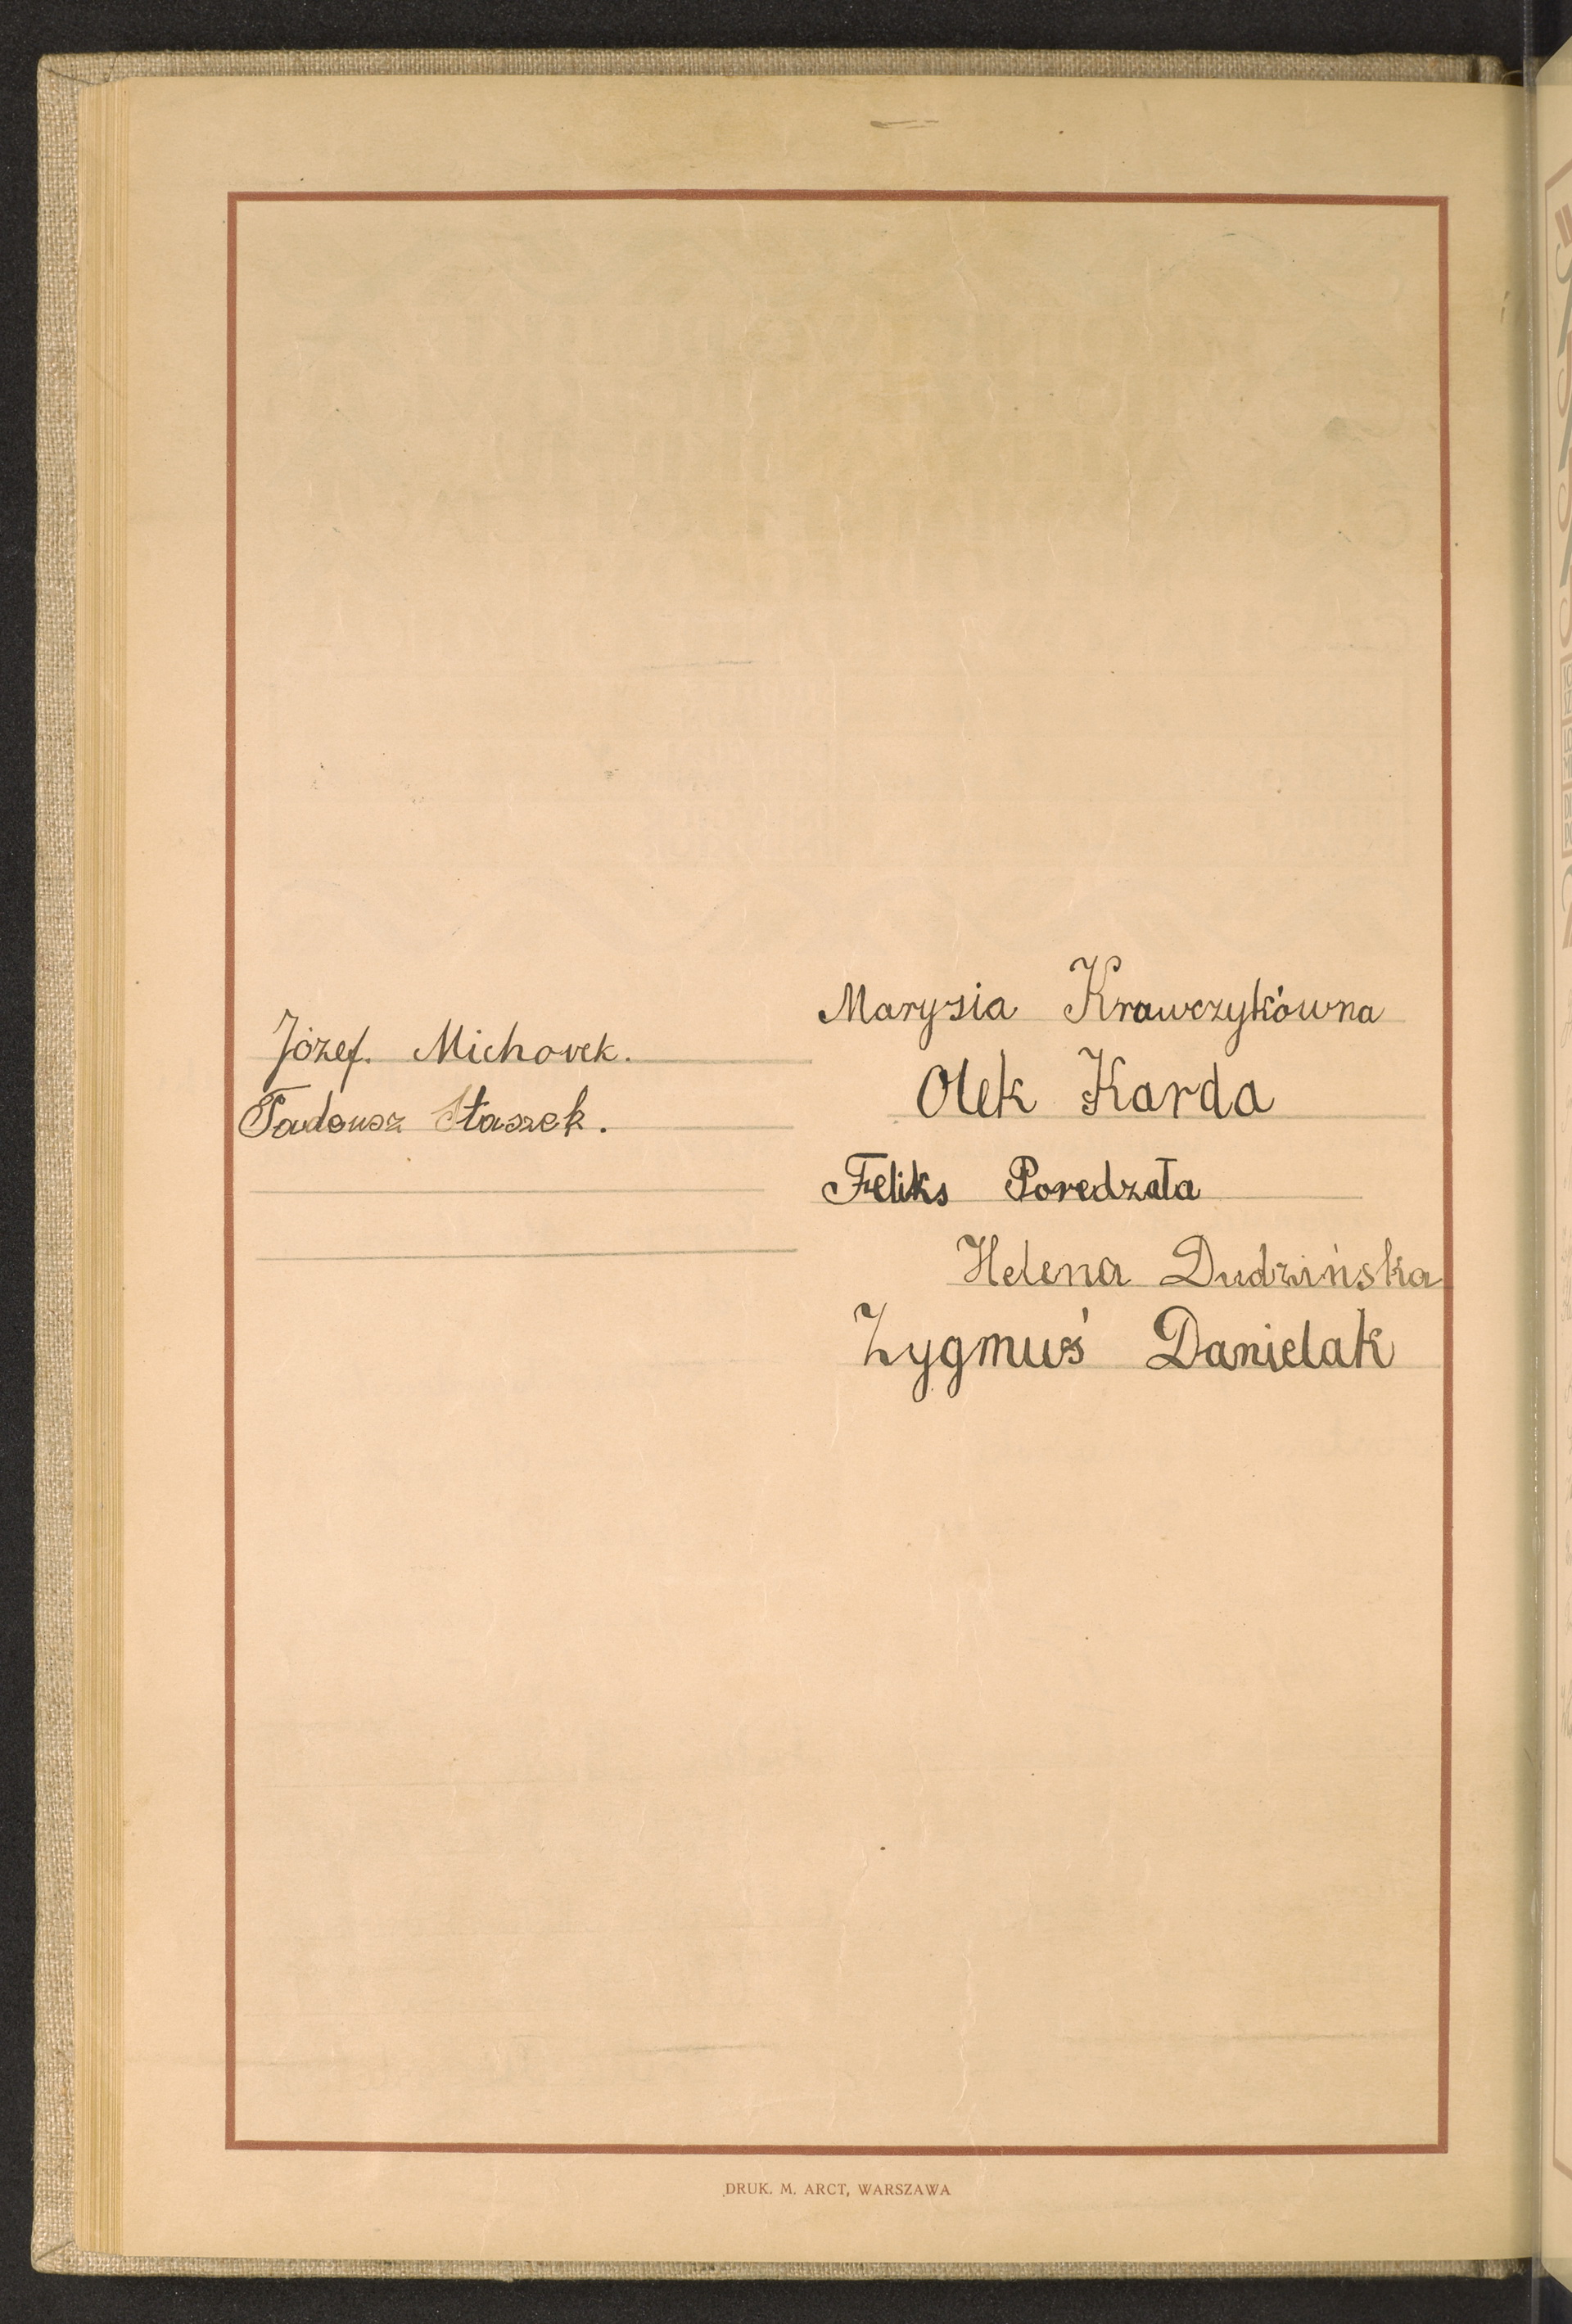 Józef. Michorek.
Tadeusz Staszek.
Marysia Krawczykówna
Olek Karda
Feliks Poredzała
Helena Dudzińska
Zygmuś Danielak
DRUK. M. ARCT, WARSZAWA